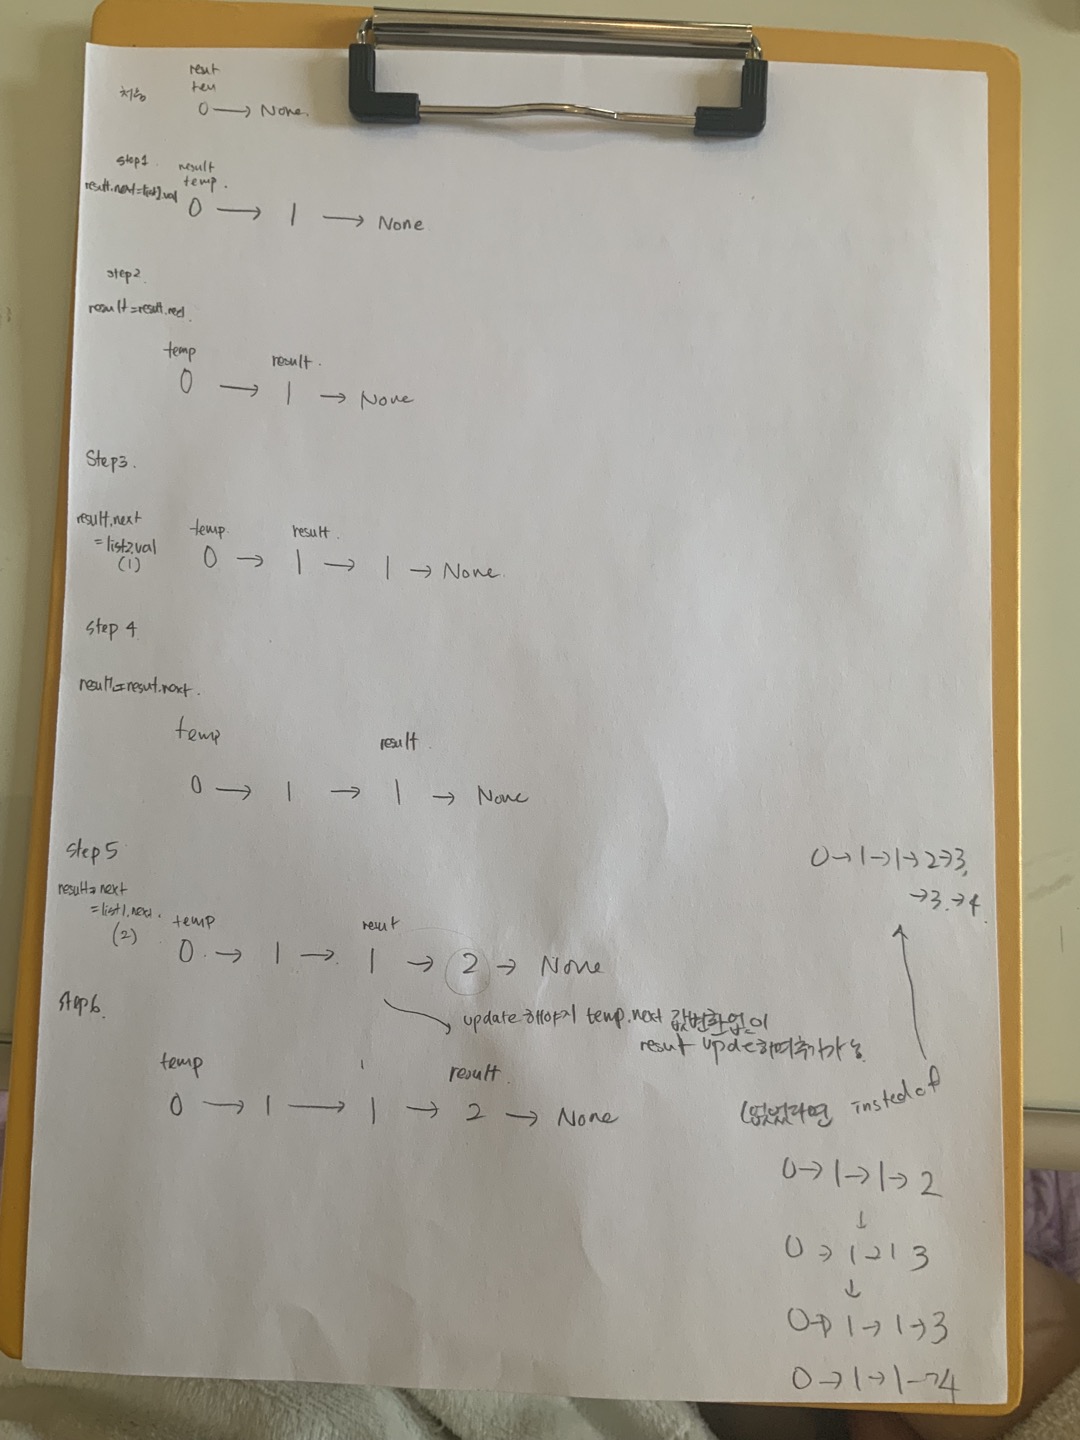 처음
result
temp
0 → None.
step1.
result
temp.
result.next=list1.val
0 → 1 → None
step2.
result=result.next.
temp
result.
0 → 1 → None
Step3.
result.next
=list2.val
(1)
temp.
result.
0 → 1 → 1 → None.
step 4
result=resut.next.
temp
result.
0 → 1 → 1 → None
step 5
result=next
=list1.next.
(2)
temp
result
0 → 1 → 1 → 2 → None
update해야지 temp.next 값변화없이
result update하며추가가능
step6.
temp
result.
0 → 1 → 1 → 2 → None
0→1→1→2→3,
→3.→4.
(없었다면 insted of
0→1→1→2
↓
0→1→1 3
↓
0→1→1→3
0→1→1→4